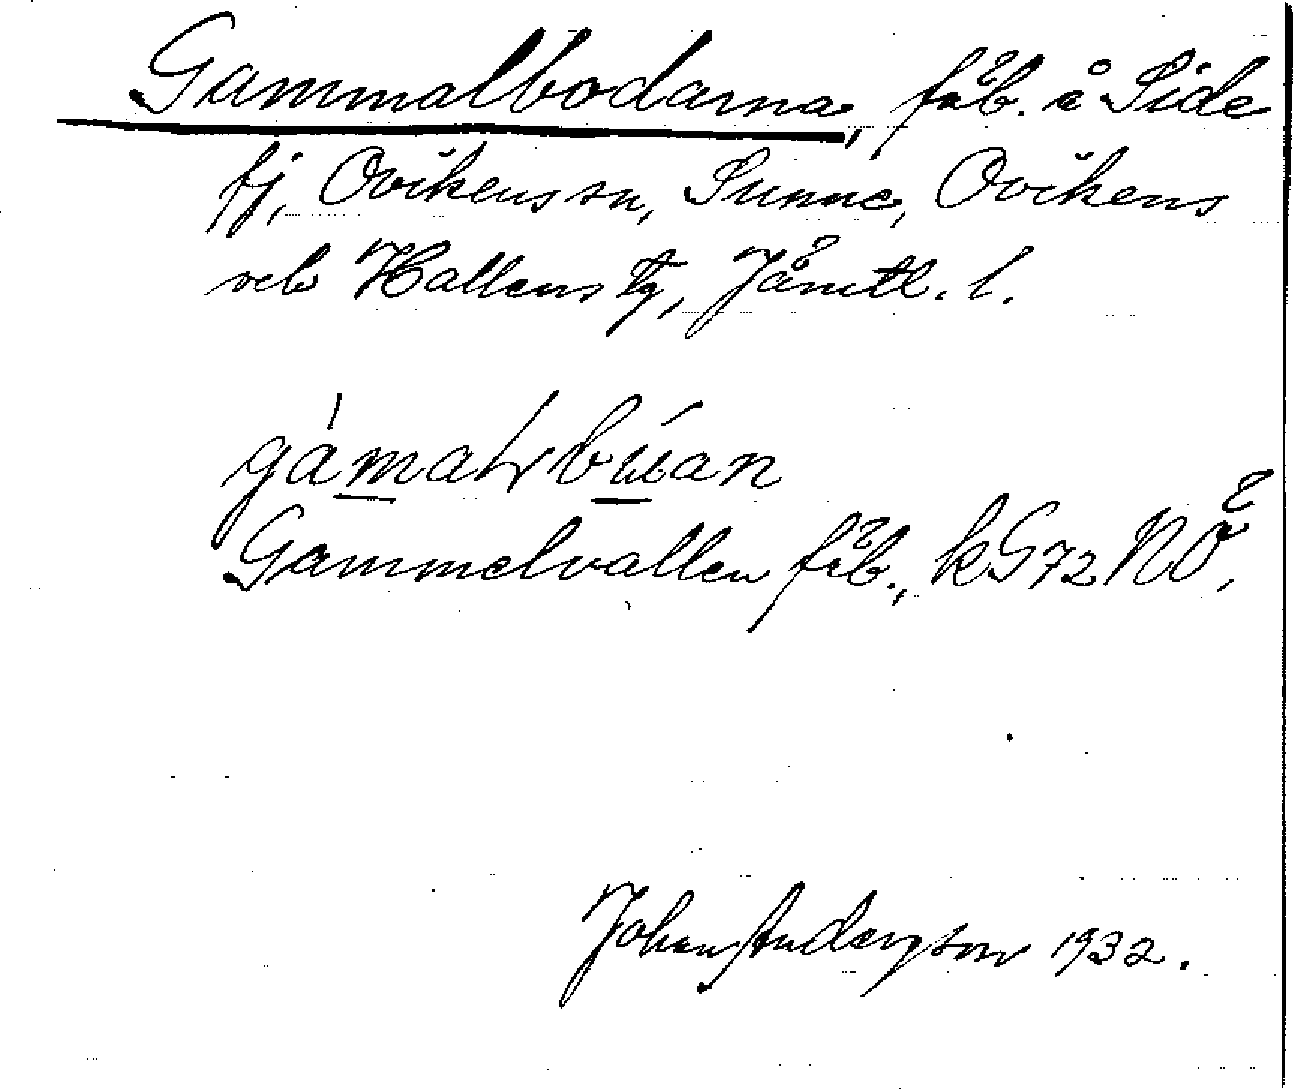 Gammalbodarna, fäb. å Side
fj, Ovikens sn, Sunne, Ovikens
och Hallens tg, Jämtl. l.
gámaɫbúan
Gammelvallen fäb., kG72NÖ,
Johan Anderson 1932.